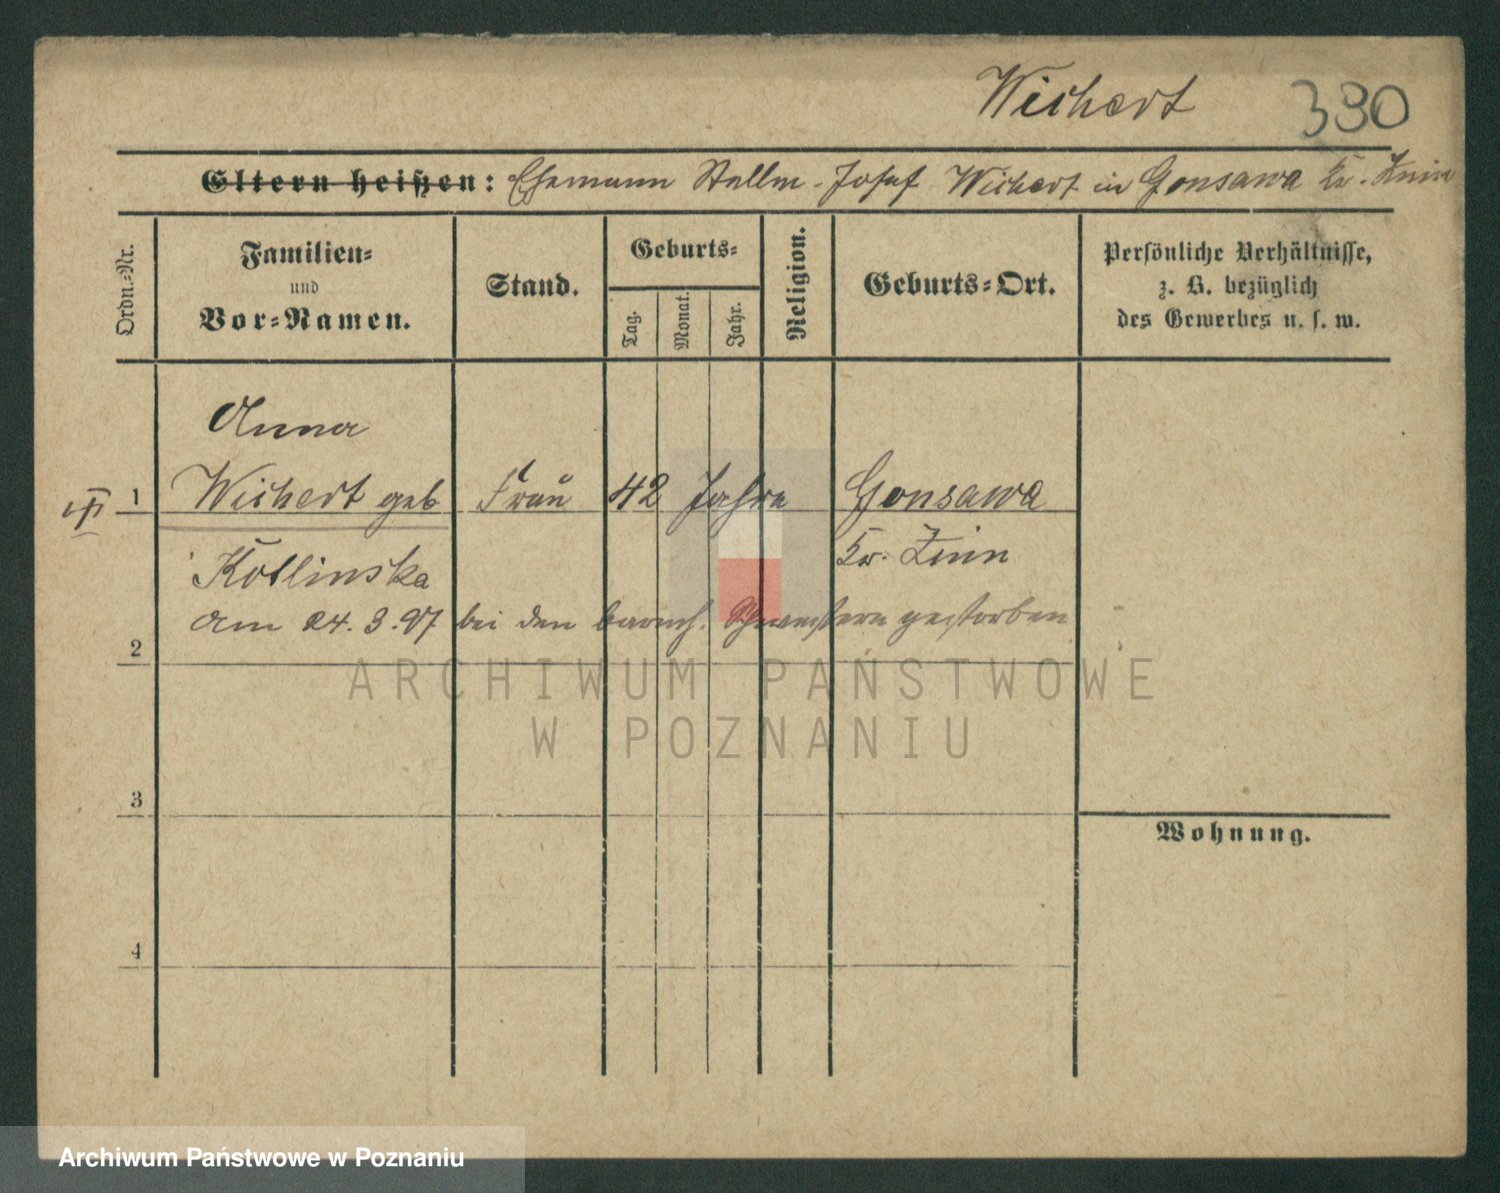 Wichert 390
Eltern heißen: Ehemann Stellm. Josef Wichert in Gonsawa Kr. Znin
Ordn.-Nr.
Familien-
und
Vor-Namen.
Stand.
Geburts-
Tag.
Monat.
Jahr.
Religion.
Geburts-Ort.
Persönliche Verhältnisse,
z. B. bezüglich
des Gewerbes u. s. w.
Anna
1 Wichert geb Frau 42 Jahre Gonsawa
Kotlinska Kr. Znin
am 24.3.97 bei den barmh. Schwestern gestorben
2
ARCHIWUM PAŃSTWOWE
W POZNANIU
3
Wohnung.
4
Archiwum Państwowe w Poznaniu